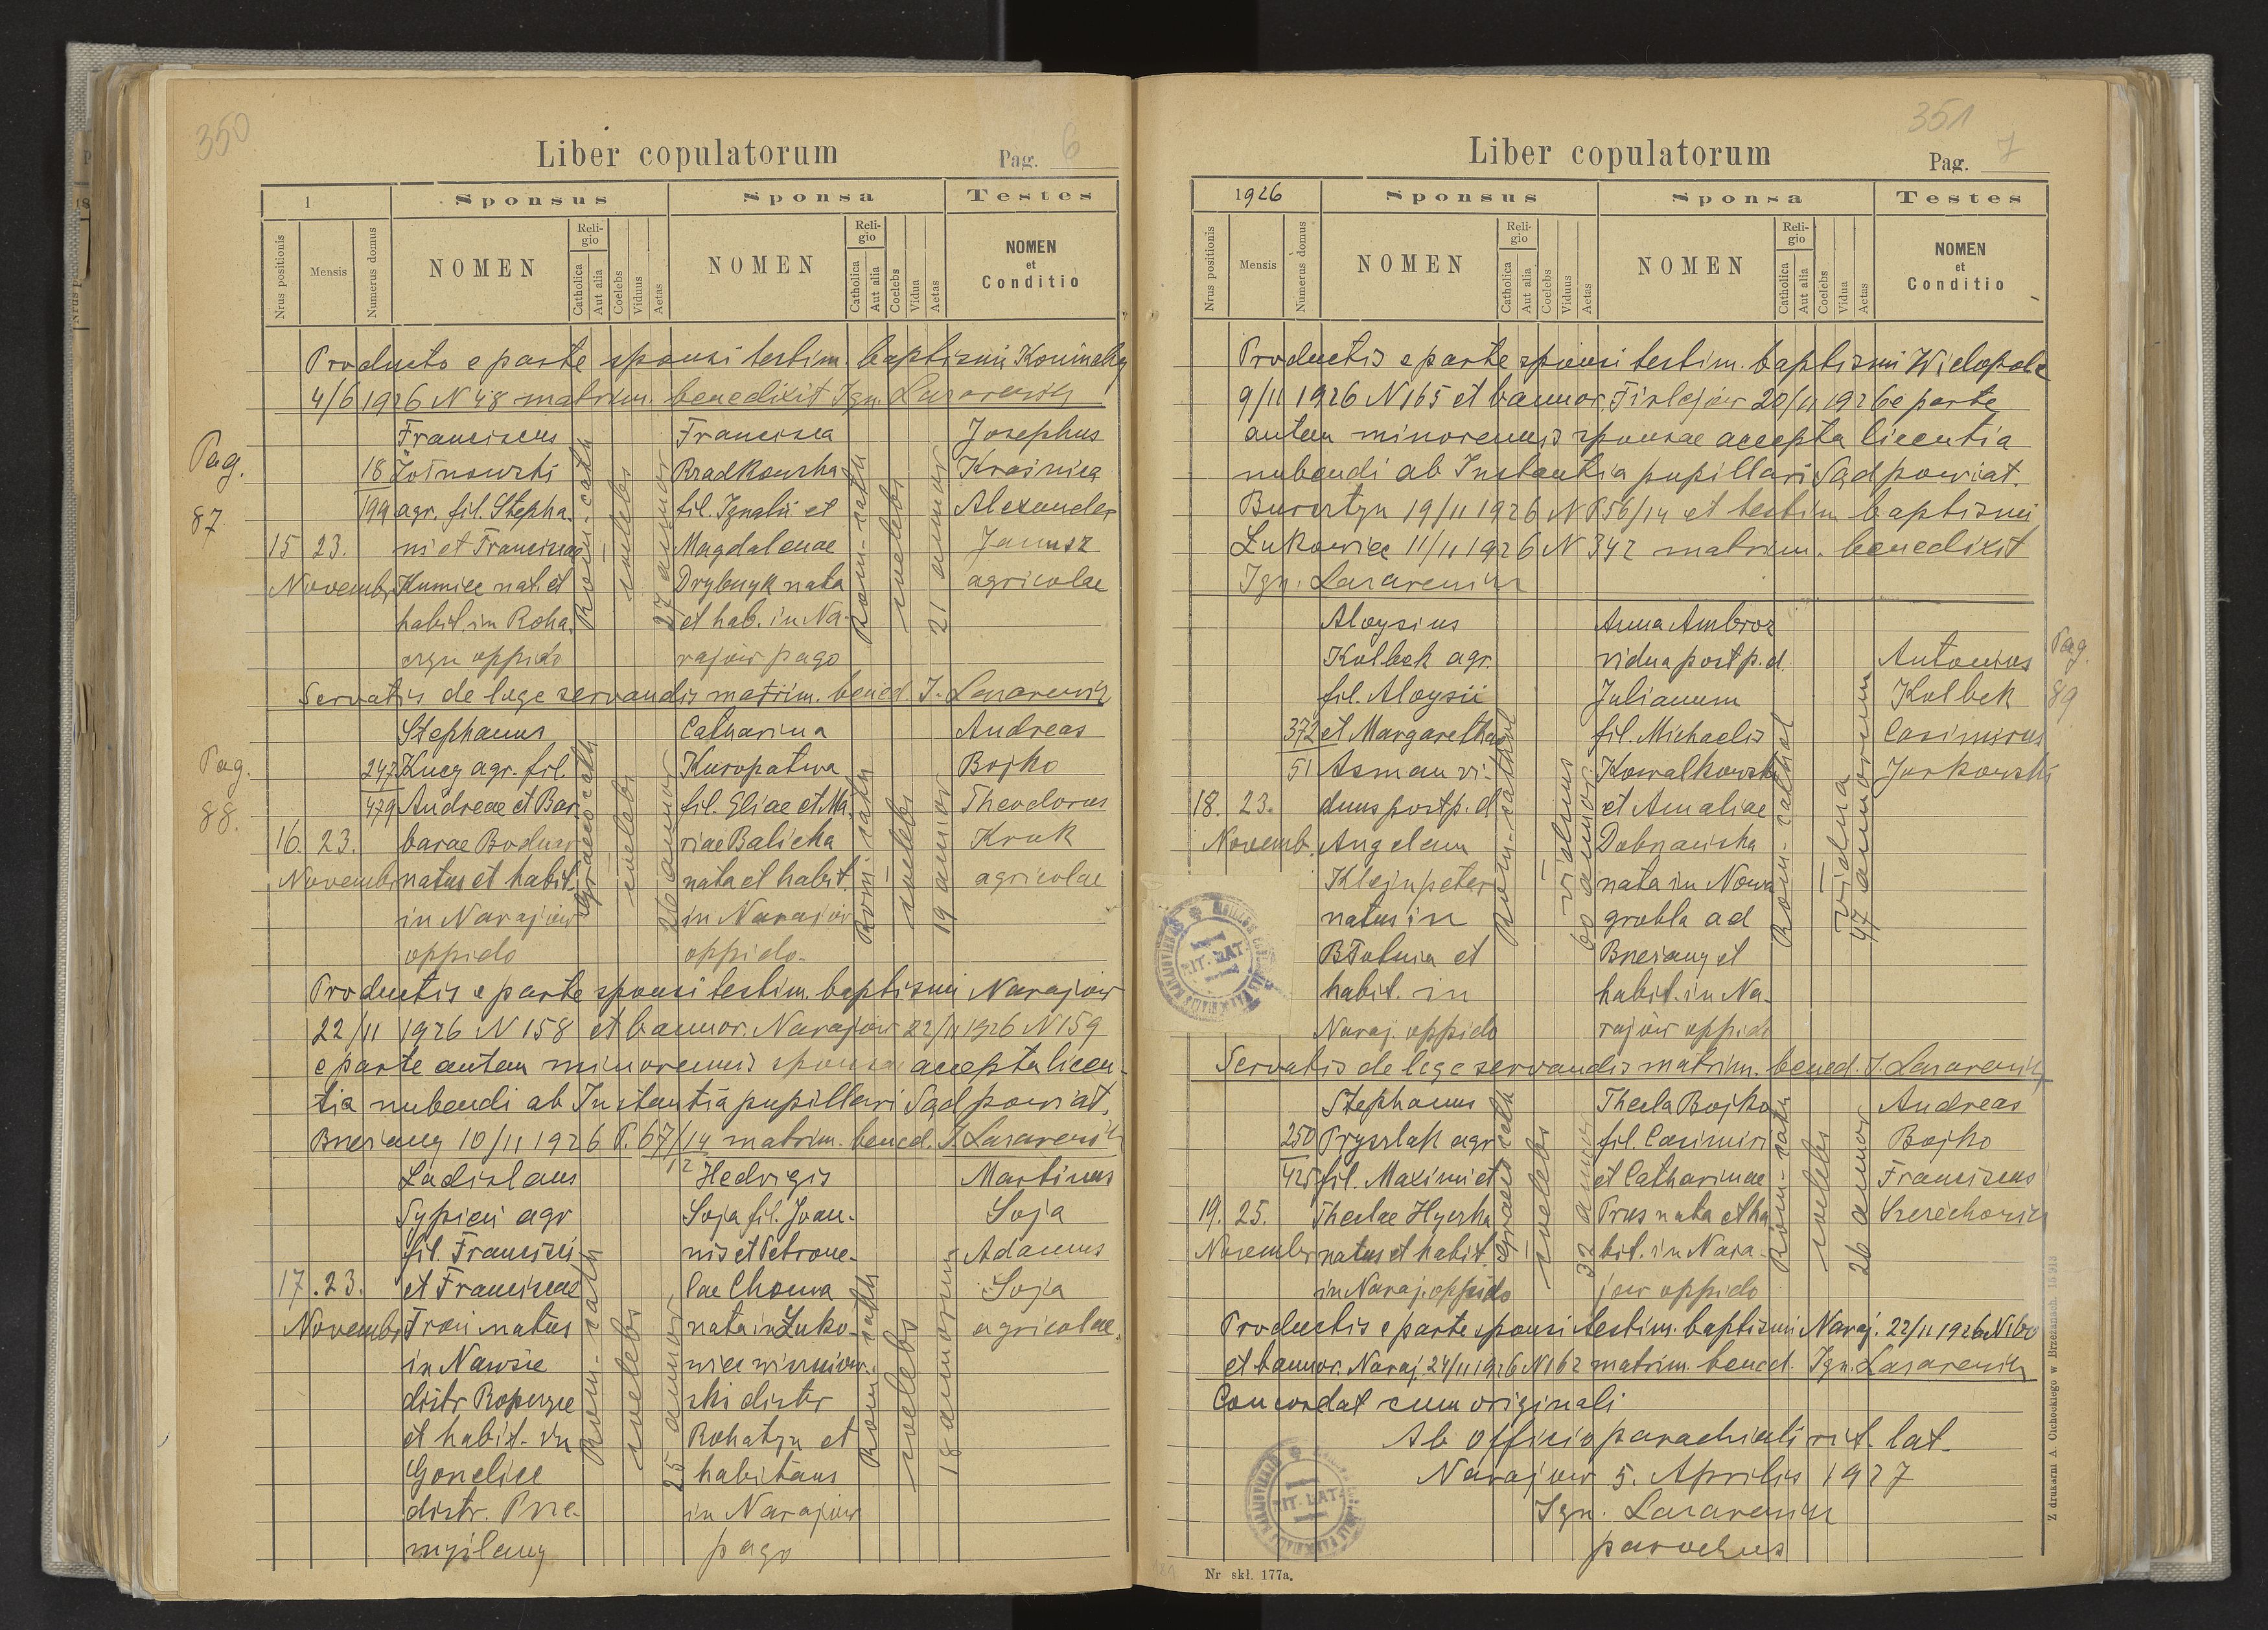 350
Liber copulatorum
Pag. 6
1
Sponsus
Sponsa
Testes
Nrus positionis
Mensis
Numerus domus
NOMEN
Religio
Catholica
Aut alia
Coelebs
Viduus
Aetas
NOMEN
Religio
Catholica
Aut alia
Coelebs
Vidua
Aetas
NOMEN
et
Conditio
Producto e parte sponsi testim. baptismi
4/6 1926 N 48 matrim. benedixit Ign. Lazarewicz
Pag.
87
15 23.
Novembr
18
199
Franciscus
Żołnowski
agr. fil. Stepha-
ni et Franciscae
Kumiec nat. et
habit. in Roha-
czyn oppido
Rom-cath
coelebs
27 annor
Francisca
Bradkowska
fil. Ignatii et
Magdalenae
nata
et hab. in Na-
rajów pago
Rom-cath
coelebs
21 annor
Josephus
Krajnica
Alexander
Janusz
agricolae
Servatis de lege servandis matrim. bened. I. Lazarewicz
Pag.
88.
16. 23.
Novembr
247
479
Stephanus
Kucy agr. fil.
Andreae et Bar-
barae Bodnar
natus et habit.
in Narajów
oppido
Graeco cath
coelebs
26 annor
Catharina
Kuropatwa
fil. Eliae et Ma-
riae Balicka
nata et habit.
in Narajów
oppido.
Rom-cath
coelebs
19 annor
Andreas
Bojko
Theodorus
Kruk
agricolae
Productis e parte sponsi testim. baptismi Narajow
22/11 1926 N 158 et bannor. Narajów 22/11 1926 N 159
e parte autem minorennis sponsae accepta licen-
tia nubendi ab Instantia pupillari Sąd powiat.
Brzeżany 10/11 1926 P. 67/14 matrim. bened. I. Lazarewicz
12
17. 23.
Novembr
Ladislaus
Sypień agr
fil. Francisci
et Franciscae
natus
in Nawsie
distr Ropczyce
et habit. in
distr. Prze-
myślany
Rom-cath
coelebs
25 annor
Hedvigis
Soja fil. Joan-
nis et Petrone-
lae Chouva
nata in Łuko-
wiec wiszniow-
ski distr
Rohatyn et
habitans
in Narajów
pago
Rom-cath
coelebs
18 annorum
Martinus
Soja
Adamus
Soja
agricolae.
351
Liber copulatorum
Pag. 7
1926
Sponsus
Sponsa
Testes
Nrus positionis
Mensis
Numerus domus
NOMEN
Religio
Catholica
Aut alia
Coelebs
Viduus
Aetas
NOMEN
Religio
Catholica
Aut alia
Coelebs
Vidua
Aetas
NOMEN
et
Conditio
Productis e parte sponsi testim. baptismi Wielopole
9/11 1926 N 165 et bannor. Firlejów 20/11 1926 e parte
autem minorennis sponsae accepta licentia
nubendi ab Instantia pupillari Sąd powiat.
Bursztyn 19/11 1926 N P 56/14 et testim baptismi
Łukowiec 11/11 1926 N 342 matrim. benedixit
Ign. Lazarewicz
Pag.
89
18. 23.
Novemb.
372
51
Aloysius
Kolbek agr.
fil. Aloysii
et Margarethae
Asman vi-
duus post p. d
Angelam
Klejnpeter
natus in
Błotnia et
habit. in
Naraj. oppido
Rom-cathol
viduus
60 annor
Anna Ambroz
vidua post p. d.
Julianum
fil. Michaelis
Kowalkowski
et Amaliae
nata in Nowa
grobla ad
Brzeżany et
habit. in Na-
rajów oppido
Rom-cathol
vidua
47 annorum
Antonius
Kolbek
Casimirus
Jurkowski
Servatis de lege servandis matrim. bened. I. Lazarewicz
19. 25.
Novembr
250
425
Stephanus
Pryszlak agr
fil. Maximi et
Theclae Hycrka
natus et habit.
in Naraj. oppido
Graeco cath
coelebs
32 annor
Thecla Bojko
fil. Casimiri
et Catharinae
Prus nata et ha-
bit. in Nara-
jow oppido
Rom-cath
coelebs
26 annor
Andreas
Bojko
Franciscus
Productis e parte sponsi testim. baptismi Naraj. 22/11 1926 N 160
et bannor. Naraj. 24/11 1926 N 162 matrim. bened. Ign. Lazarewicz
Concordat cum originali
Ab officio parochiali rit. lat.
Narajów 5. Aprilis 1927
Ign. Lazarewicz
parochus
RIT. LAT.
RIT. LAT.
Nr skł. 177a.
Z drukarni A. Cichockiego w Brzeżanach.